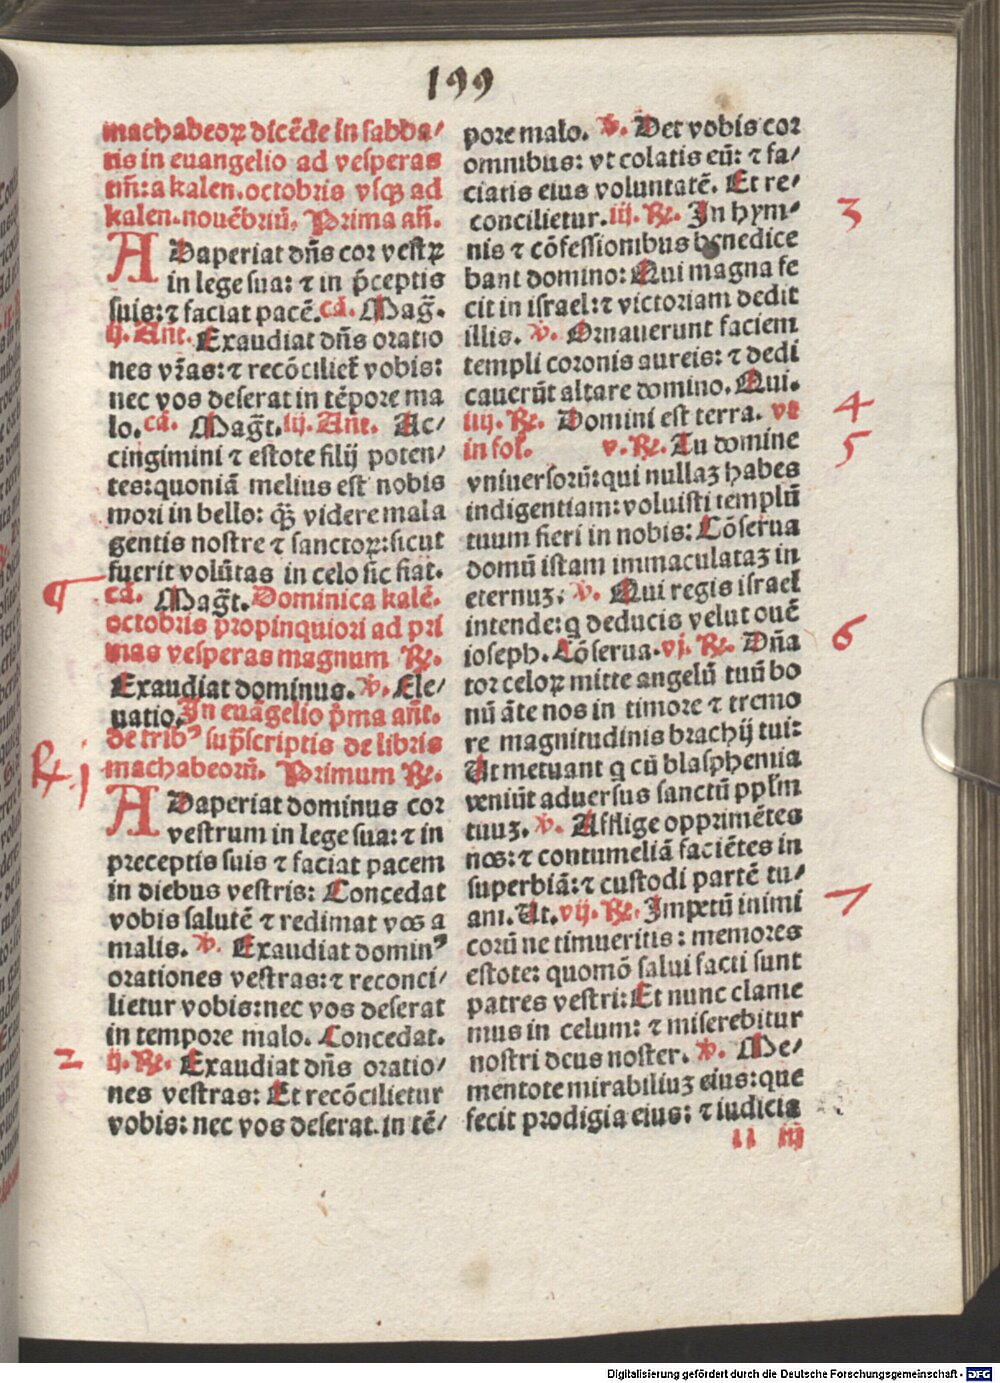 199
machabeoꝝ dicēde in sabba/
tis in euangelio ad vesperas
tm̄: a kalen. octobris vsqꝫ ad
kalen. nouēbriū. Prima añ.
ADaperiat dn̄s cor vestꝝ
in lege sua: ⁊ in p̄ceptis
suis: ⁊ faciat pacē. cā. Mag̃.
ij. Añt. Exaudiat dn̄s oratio
nes vr̄as: ⁊ recōciliet᷑ vobis:
nec vos deserat in tēpore ma
lo. cā. Mag̃t. iij. Añt. Ac/
cingimini ⁊ estote filij poten/
tes: quoniā melius est nobis
mori in bello: qꝫ̄ videre mala
gentis nostre ⁊ sanctoꝝ: sicut
fuerit volūtas in celo sic fiat.
¶ cā. Mag̃t. Dominica kalē.
octobris propinquiori ad pri
mas vesperas magnum ℞.
Exaudiat dominus. ℣. Ele/
uatio. In euāgelio p̄ma añt.
de tribꝰ sup̄scriptis de libris
℞ j machabeorū. Primum ℞.
ADaperiat dominus cor
vestrum in lege sua: ⁊ in
preceptis suis ⁊ faciat pacem
in diebus vestris: Concedat
vobis salutē ⁊ redimat vos a
malis. ℣. Exaudiat dominꝰ
orationes vestras: ⁊ reconci/
lietur vobis: nec vos deserat
in tempore malo. Concedat.
2 ij. ℞. Exaudiat dn̄s oratio/
nes vestras: Et recōcilietur
vobis: nec vos deserat. in tē/
pore malo. ℣. Det vobis cor
omnibus: vt colatis eū: ⁊ fa/
ciatis eius voluntatē. Et re/
concilietur. iij. ℞. In hym/ 3
nis ⁊ cōfessionibus benedice
bant domino: Qui magna fe
cit in israel: ⁊ victoriam dedit
illis. ℣. Ornauerunt faciem
templi coronis aureis: ⁊ dedi
cauerūt altare domino. Qui.
iiij. ℞. Domini est terra. vt 4
in fol. v. ℞. Tu domine 5
vniuersorū: qui nullaꝫ habes
indigentiam: voluisti templū
tuum fieri in nobis: Cōserua
domū istam immaculataꝫ in
eternuꝫ. ℣. Qui regis israel
intende: q deducis velut ouē
ioseph. Cōserua. vj. ℞. Dn̄a 6
tor celoꝝ mitte angelū tuū bo
nū āte nos in timore ⁊ tremo
re magnitudinis brachij tui:
Ut metuant q cū blasphemia
veniūt aduersus sanctū ppl̄m
tuuꝫ. ℣. Afflige opprimētes
nos: ⁊ contumeliā faciētes in
superbiā: ⁊ custodi partē tu/
am. Ut. vij. ℞. Impetū inimi 7
corū ne timueritis: memores
estote: quomō salui facti sunt
patres vestri: Et nunc clame
mus in celum: ⁊ miserebitur
nostri deus noster. ℣. Me/
mentote mirabiliuꝫ eius: que
fecit prodigia eius: ⁊ iudicia
ll iij
Digitalisierung gefördert durch die Deutsche Forschungsgemeinschaft - DFG